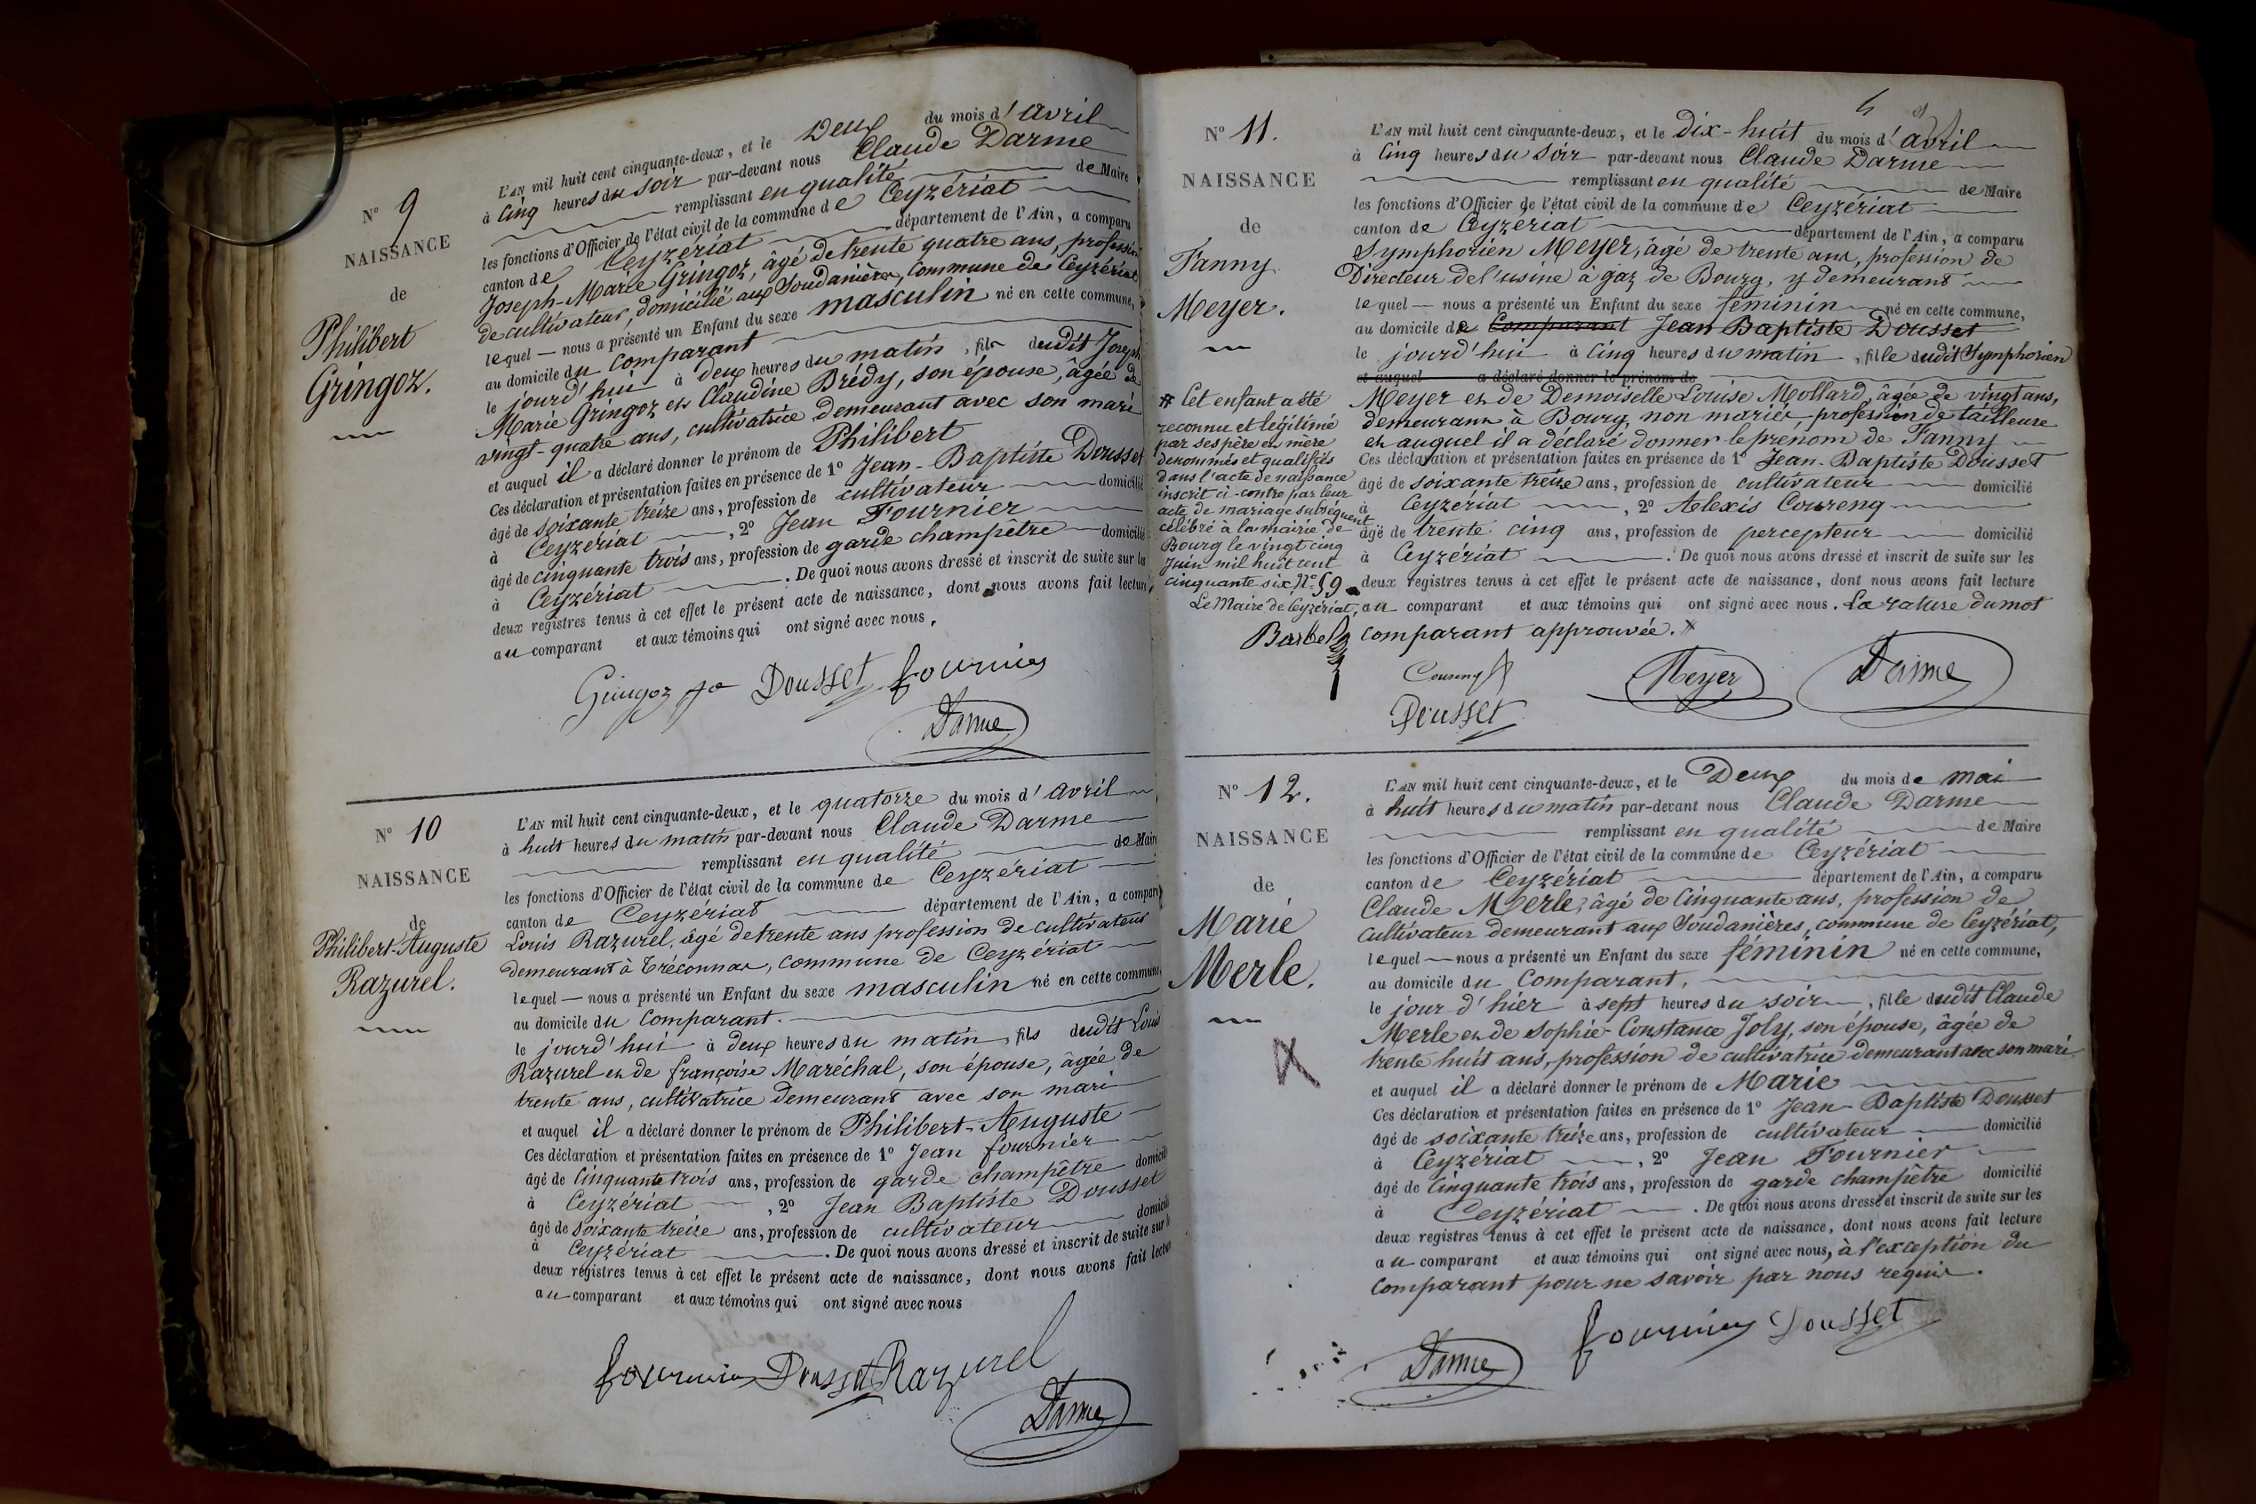 N° 9
NAISSANCE
de
Philibert
Gringoz.
L'AN mil huit cent cinquante-deux, et le Deux du mois d'avril
à cinq heures du soir par-devant nous Claude Darme
remplissant en qualité de Maire
les fonctions d'Officier de l'état civil de la commune de Ceyzériat
canton de Ceyzériat département de l'Ain, a comparu
Joseph-Marie Gringoz, âgé de trente quatre ans, profession
de cultivateur, domicilié aux Soudanières, commune de Ceyzériat
lequel — nous a présenté un Enfant du sexe masculin né en cette commune,
au domicile du comparant
le jourd'hui à deux heures du matin, fils dudit Joseph
Marie Gringoz et Claudine Brédy, son épouse, âgée de
vingt-quatre ans, cultivatrice demeurant avec son mari
et auquel il a déclaré donner le prénom de Philibert
Ces déclaration et présentation faites en présence de 1° Jean-Baptiste Dousset
âgé de soixante treize ans, profession de cultivateur domicilié
à Ceyzériat, 2° Jean Fournier
âgé de cinquante trois ans, profession de garde champêtre domicilié
à Ceyzériat. De quoi nous avons dressé et inscrit de suite sur les
deux registres tenus à cet effet le présent acte de naissance, dont nous avons fait lecture,
au comparant et aux témoins qui ont signé avec nous.
Gringoz Dousset fournier
Darme
N° 10
NAISSANCE
de
Philibert-Auguste
Razurel.
L'AN mil huit cent cinquante-deux, et le quatorze du mois d'avril
à huit heures du matin par-devant nous Claude Darme
remplissant en qualité de Maire
les fonctions d'Officier de l'état civil de la commune de Ceyzériat
canton de Ceyzériat département de l'Ain, a comparu
Louis Razurel, âgé de trente ans profession de cultivateur
demeurant à Tréconnas, commune de Ceyzériat
lequel — nous a présenté un Enfant du sexe masculin né en cette commune,
au domicile du comparant.
le jourd'hui à deux heures du matin, fils dudit Louis
Razurel et de françoise Maréchal, son épouse, âgée de
trente ans, cultivatrice demeurant avec son mari
et auquel il a déclaré donner le prénom de Philibert-Auguste
Ces déclaration et présentation faites en présence de 1° Jean fournier
âgé de cinquante trois ans, profession de garde champêtre domicilié
à Ceyzériat, 2° Jean Baptiste Dousset
âgé de soixante treize ans, profession de cultivateur domicilié
à Ceyzériat. De quoi nous avons dressé et inscrit de suite sur les
deux registres tenus à cet effet le présent acte de naissance, dont nous avons fait lecture
au comparant et aux témoins qui ont signé avec nous
fournier Dousset Razurel
Darme
N° 11.
NAISSANCE
de
Fanny
Meyer.
L'AN mil huit cent cinquante-deux, et le dix-huit du mois d'avril
à cinq heures du soir par-devant nous Claude Darme
remplissant en qualité de Maire
les fonctions d'Officier de l'état civil de la commune de Ceyzériat
canton de Ceyzériat département de l'Ain, a comparu
Symphorien Meyer, âgé de trente ans, profession de
Directeur de l'usine à gaz de Bourg, y demeurant
lequel — nous a présenté un Enfant du sexe féminin né en cette commune,
au domicile de comparant Jean Baptiste Dousset
le jourd'hui à cinq heures du matin, fille dudit Symphorien
et auquel a déclaré donner le prénom de
Meyer et de Demoiselle Louise Mollard, âgée de vingt ans,
demeurant à Bourg, non mariée, profession de tailleuse
et auquel il a déclaré donner le prénom de Fanny
Ces déclaration et présentation faites en présence de 1° Jean-Baptiste Dousset
âgé de soixante treize ans, profession de cultivateur domicilié
à Ceyzériat, 2° Alexis Coureng
âgé de trente cinq ans, profession de percepteur domicilié
à Ceyzériat. De quoi nous avons dressé et inscrit de suite sur les
deux registres tenus à cet effet le présent acte de naissance, dont nous avons fait lecture
au comparant et aux témoins qui ont signé avec nous. La rature du mot
comparant approuvée.
Cet enfant a été
reconnu et légitimé
par ses père et mère
dénommés et qualifiés
dans l'acte de naissance
inscrit ci-contre par leur
acte de mariage subséquent
célébré à la mairie de
Bourg le vingt cinq
juin mil huit cent
cinquante six, N° 59
Le Maire de Ceyzériat,
Coureng Meyer Darme
Dousset
N° 12.
NAISSANCE
de
Marie
Merle.
L'AN mil huit cent cinquante-deux, et le Deux du mois de mai
à huit heures du matin par-devant nous Claude Darme
remplissant en qualité de Maire
les fonctions d'Officier de l'état civil de la commune de Ceyzériat
canton de Ceyzériat département de l'Ain, a comparu
Claude Merle, âgé de cinquante ans, profession de
cultivateur demeurant aux Soudanières, commune de Ceyzériat,
lequel — nous a présenté un Enfant du sexe féminin né en cette commune,
au domicile du comparant,
le jour d'hier à sept heures du soir, fille dudit Claude
Merle et de Sophie-Constance Joly, son épouse, âgée de
trente huit ans, profession de cultivatrice demeurant avec son mari
et auquel il a déclaré donner le prénom de Marie
Ces déclaration et présentation faites en présence de 1° Jean-Baptiste Dousset
âgé de soixante treize ans, profession de cultivateur domicilié
à Ceyzériat, 2° Jean Fournier
âgé de cinquante trois ans, profession de garde champêtre domicilié
à Ceyzériat. De quoi nous avons dressé et inscrit de suite sur les
deux registres tenus à cet effet le présent acte de naissance, dont nous avons fait lecture
au comparant et aux témoins qui ont signé avec nous, à l'exception du
comparant pour ne savoir par nous requis.
fournier Dousset
Darme